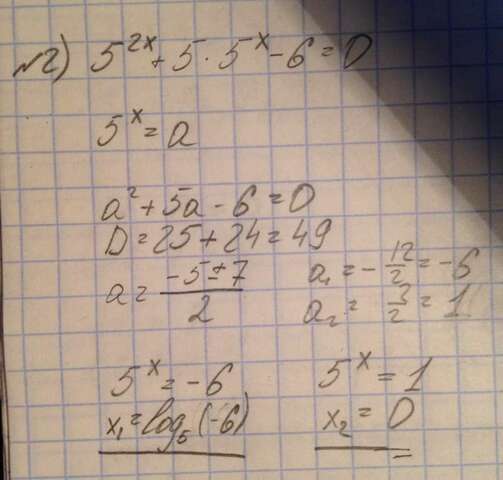 №2) 5^2x + 5 · 5^x - 6 = 0
5^x = a
a² + 5a - 6 = 0
D = 25 + 24 = 49
a = (-5 ± 7)/2 a₁ = - 12/2 = -6
a₂ = 2/2 = 1
5^x = -6 5^x = 1
x₁ = log₅(-6) x₂ = 0